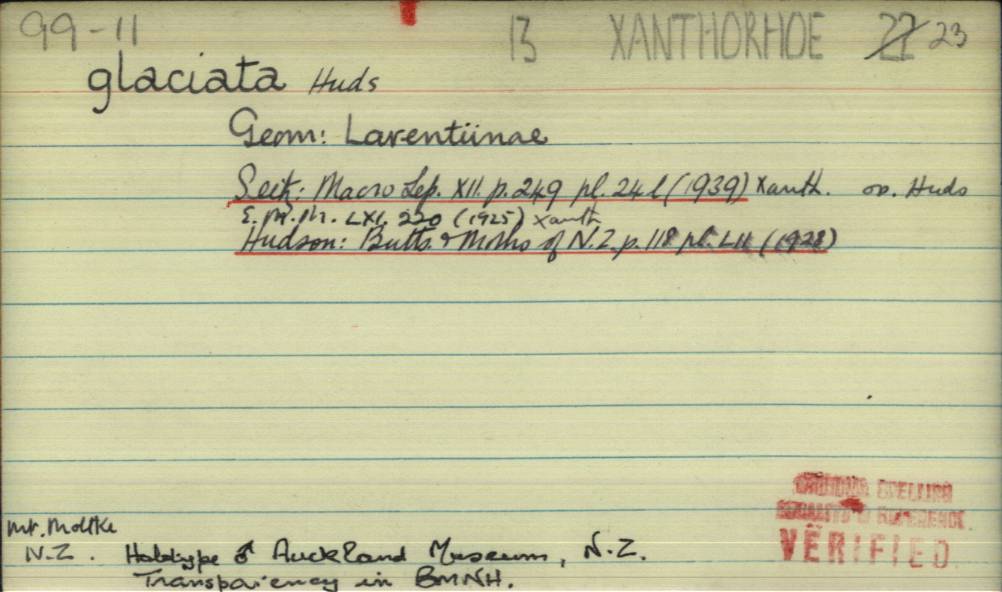 99-11 13 XANTHORHOE 22 23
glaciata Huds
Geom: Larentiinae
Seitz: Macro Lep. XII. p. 249 pl. 24 l (1939) Xanth. ov. Huds
E.M.M. LXI. 220 (1925) Xanth
Hudson: Butts. & Moths of N.Z. p. 118 pl. LII (1928)
SPELLING
REFERENCE
VERIFIED
Mt. Moltke
N.Z. Holotype ♂ Auckland Museum, N.Z.
Transparency in BMNH.